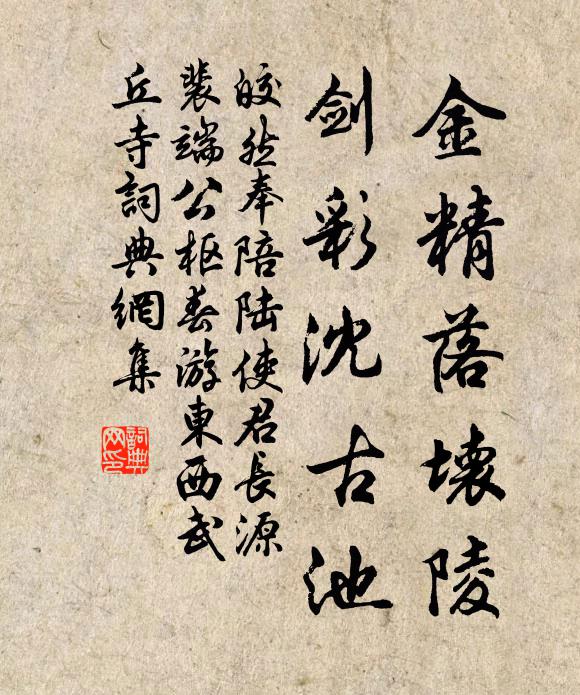 金精落壞陵
剑彩沈古池
皎然奉陪陆使君長源
裴端公枢春游東西武
丘寺詞典網集
詞典
网印